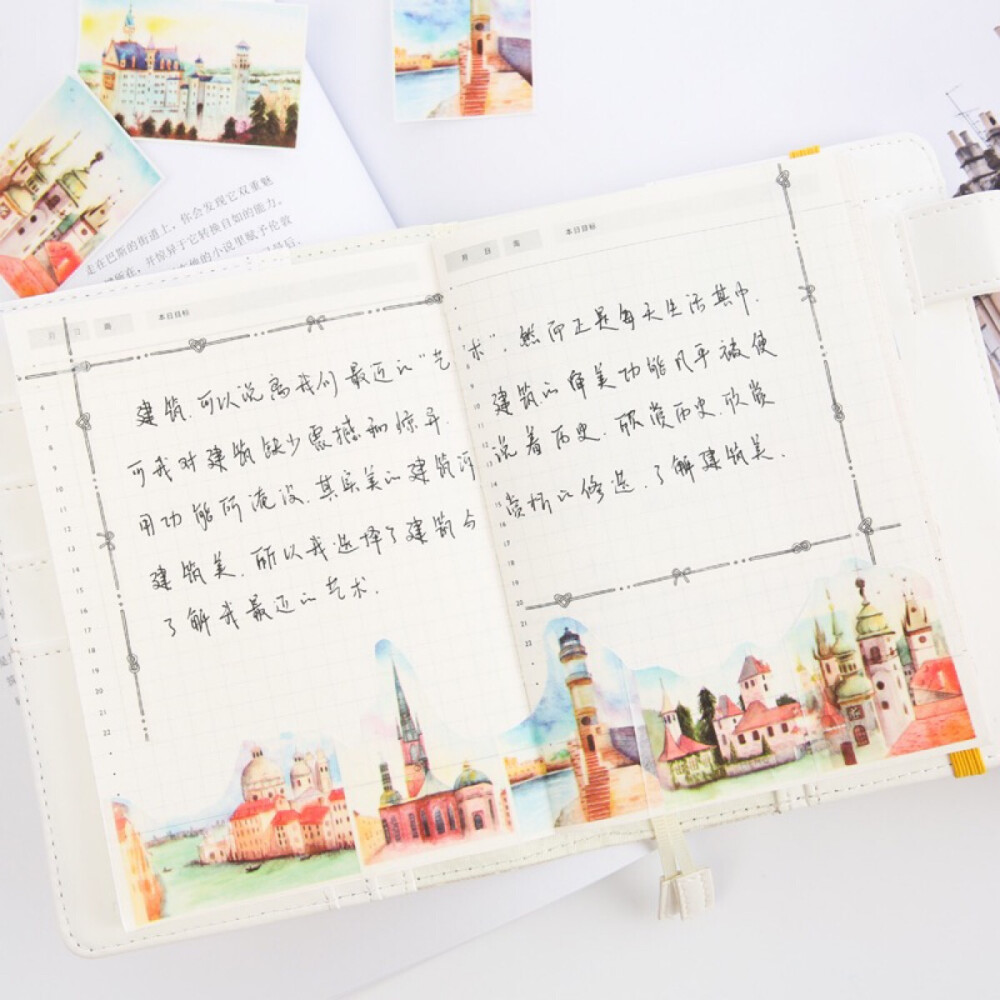 走在巴斯的街道上,你会发现它双重魅
并惊异于它转换自如的能力。
的小说里赋予伦敦
月 日 周 本日目标
建筑.可以说离我们最近的“艺
可我对建筑缺少震撼和惊异.
用功能所淹没.其实美的建筑
建筑美.所以我选择了建筑与
了解我最近的艺术.
6
7
8
9
10
11
12
13
14
15
16
17
18
19
20
21
22
月 日 周 本日目标
术”.然而正是每天生活其中.
建筑的审美功能几乎被使
说着历史.
历史.欣赏
赏析的修选.了解建筑美.
9
10
11
12
13
14
15
16
17
18
19
20
21
22